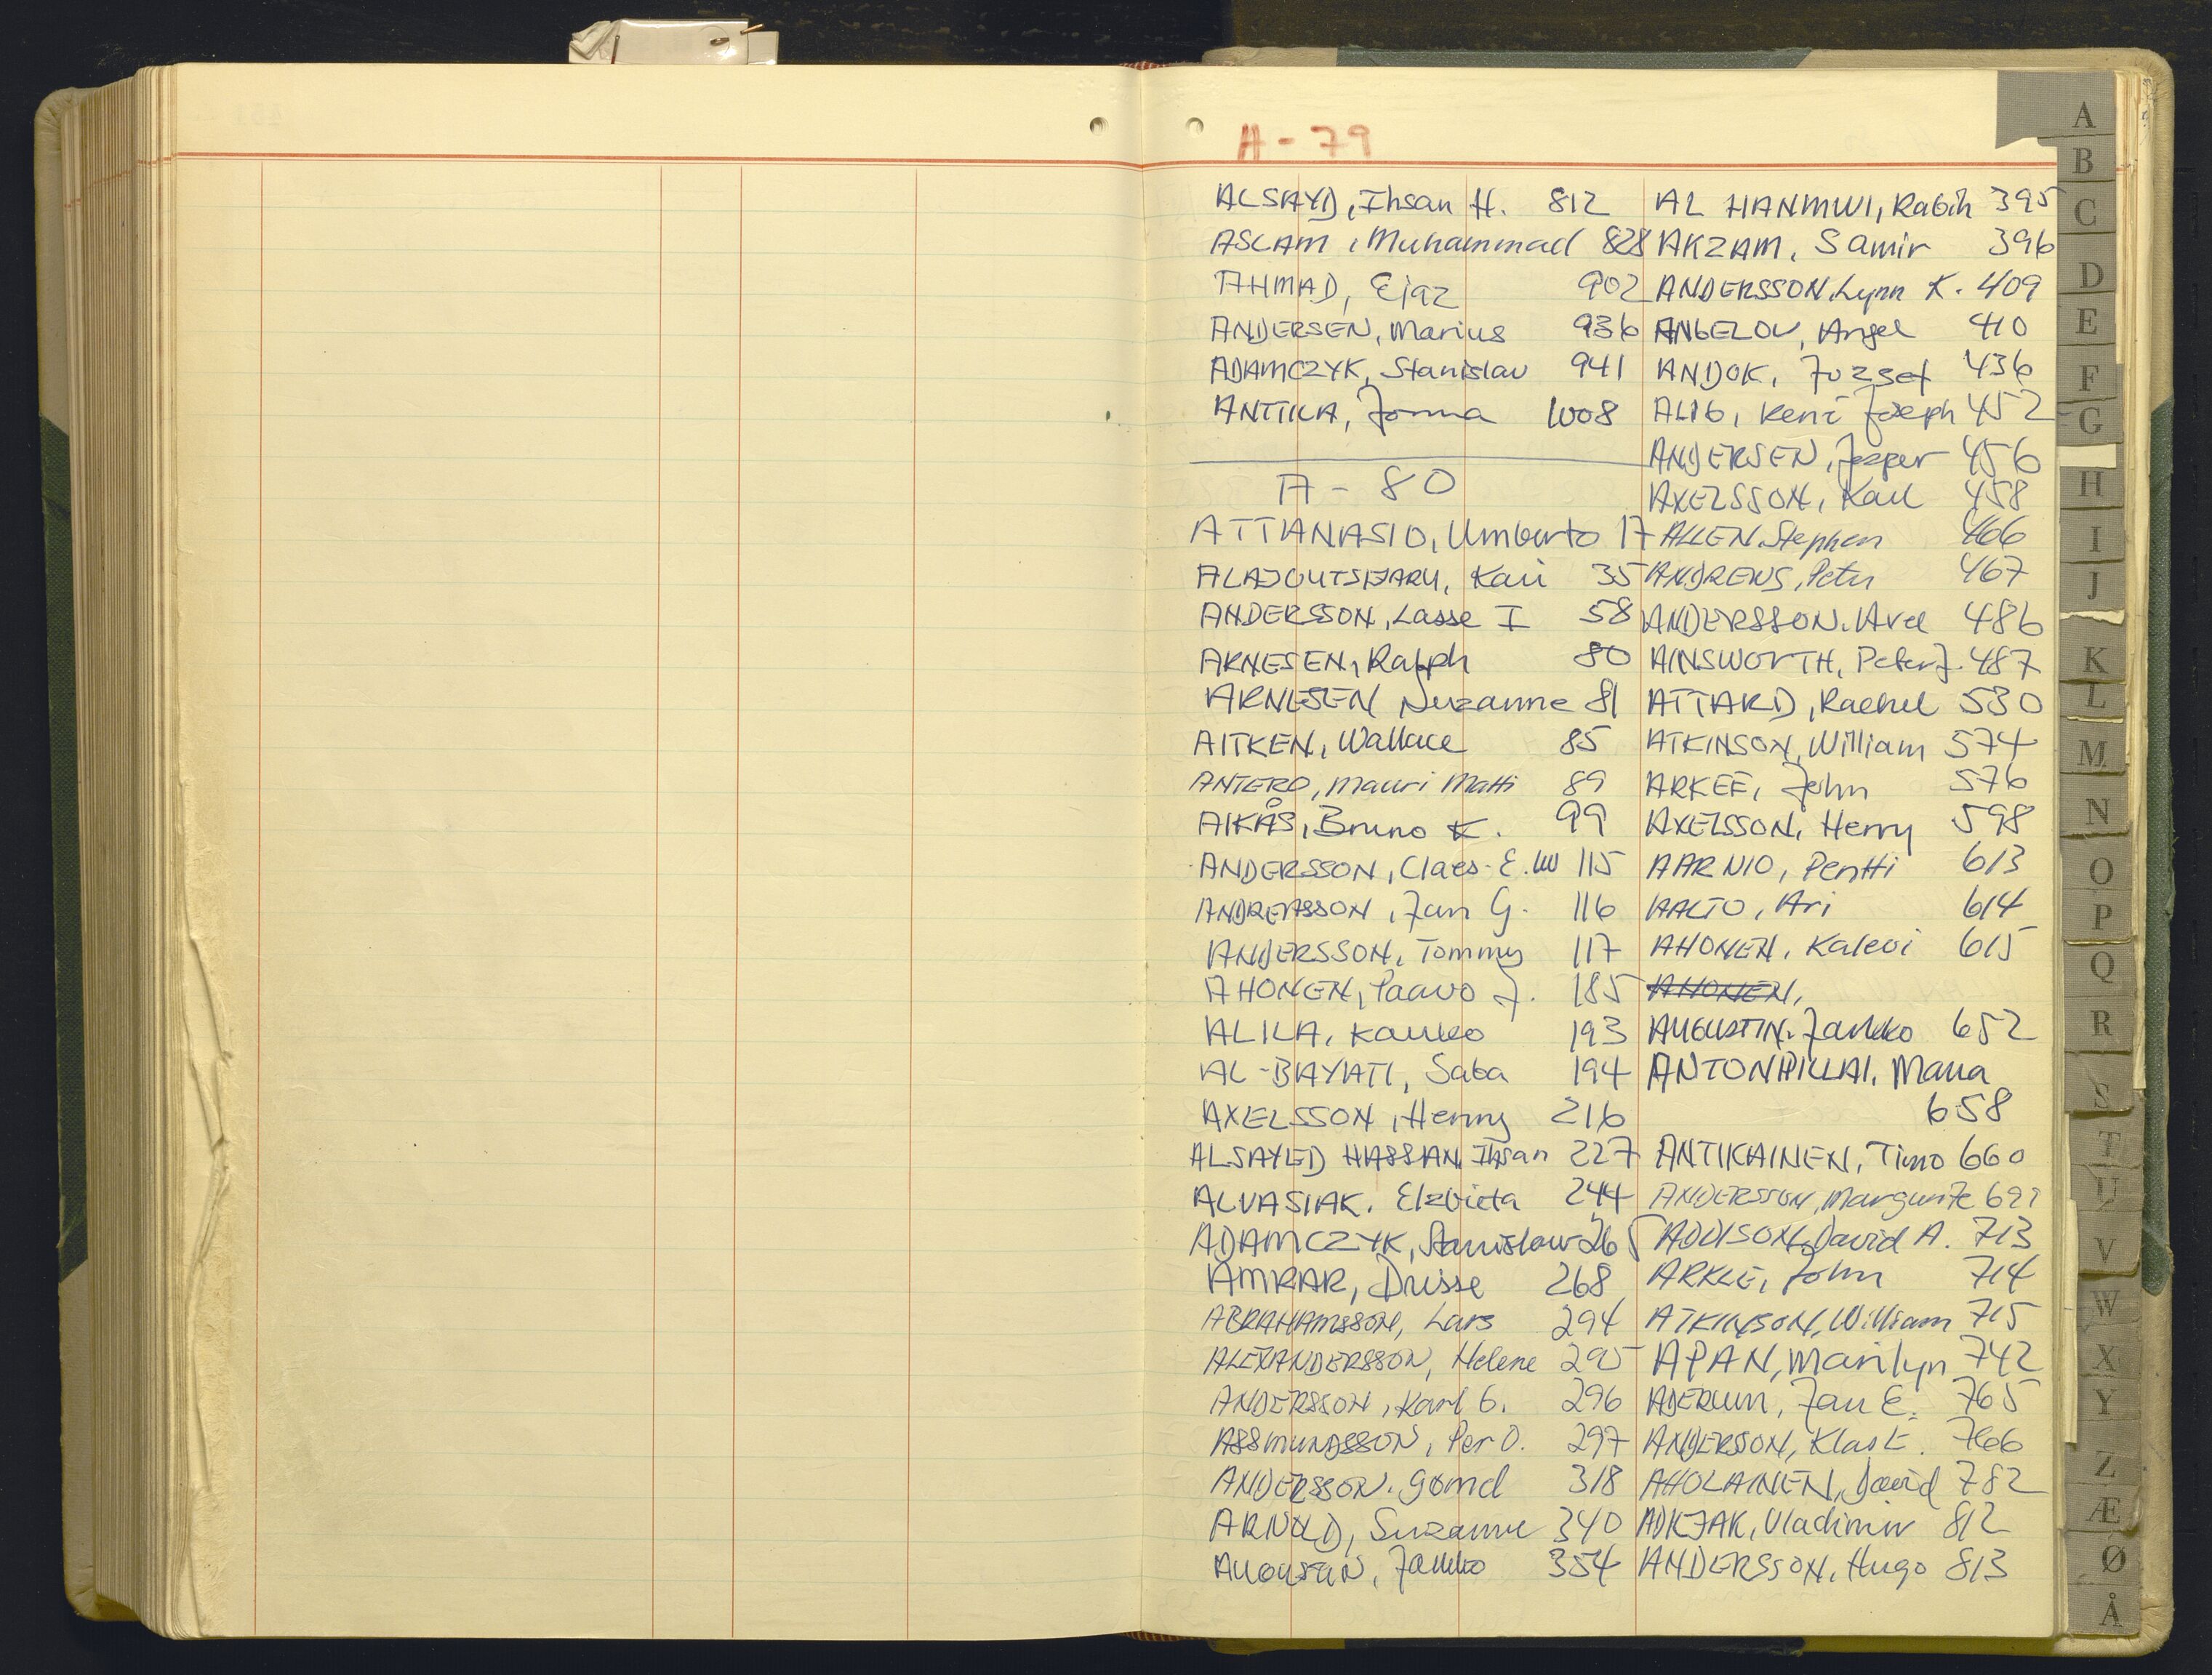 A - 79
ALSAYD, Ihsan H. 812
ASLAM, Muhammad 828
AHMAD, Ejaz 902
ANDERSEN, Marius 936
ADAMCZYK, Stanislav 941
ANTTILA, Jorma 1008
A - 80
ATTIANASIO, Umberto 17
Kari 35
ANDERSSON, Lasse I 58
ARNESEN, Ralph 80
ARNESEN Suzanne 81
AITKEN, Wallace 85
ANTERO, Mauri Matti 89
AIKÅS, Bruno K. 99
ANDERSSON, Claes-E. W 115
ANDREASSON, Jan G. 116
ANDERSSON, Tommy 117
AHONEN, Paavo J. 185
ALILA, Kauko 193
AL-BAYATI, Saba 194
AXELSSON, Henry 216
ALSAYED HASSAN, Ihsan 227
ALVASIAK. Elzbieta 244
ADAMCZYK, Stanislaw 265
AMRAR, Drisse 268
ABRAHAMSSON, Lars 294
ALEXANDERSSON, Helene 295
ANDERSSON, Karl G. 296
ASSMUNDSSON, Per O. 297
ANDERSSON. 318
ARNOLD, Suzanne 340
AUGUSTIN, Jaukko 354
AL HANMWI, Rabih 395
AKZAM, Samir 396
ANDERSSON, Lynn K. 409
ANGELOV, Angel 410
ANDOK, Jozsef 436
Joseph 452
ANDERSEN, Jesper 456
AXELSSON, Karl 458
ALLEN, Stephen 466
ANDREWS, Peter 467
ANDERSSON. 486
AINSWORTH, Peter J. 487
ATTARD, Rachel 530
ATKINSON, William 574
ARKEE, John 576
AXELSSON, Henry 598
AARNIO, Pentti 613
AALTO, Ari 614
AHONEN, Kalevi 615
AHONEN,
AUGUSTIN. Jaukko 652
ANTONPILLAI. Maria
658
ANTIKAINEN, Timo 660
ANDERSSON, Margurite
ADDISON, David A. 713
ARKLE, John 714
ATKINSON, William 715
APAN, Marilyn 742
ADERUM, Jan E. 765
ANDERSSON, Klas E. 766
AHOLAINEN, David 782
ADKJAK, Vladimir 812
ANDERSSON, Hugo 813
A
B
C
D
E
F
G
H
I
J
K
L
M
N
O
P
Q
R
S
T
U
V
W
X
Y
Z
Æ
Ø
Å